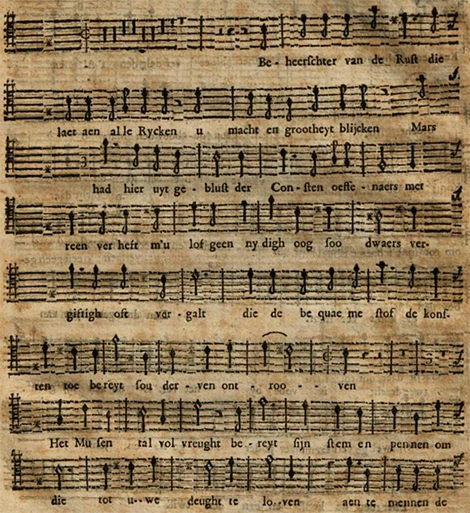 Be - heerschter van de Rust die
laet aen al le Rycken u macht en grootheyt blijcken Mars
had hier uyt ge - blust der Con - sten oeffe - naers met
reen ver heft m'u lof geen ny digh oog soo dwaers ver-
giftigh oft ver - galt die de be quae me stof de kons-
ten toe be reyt sou der - ven ont - roo - - ven
Het Mu sen tal vol vreught be - reyt sijn stem en pennen om
die tot u - we deught te lo - ven aen te mennen de